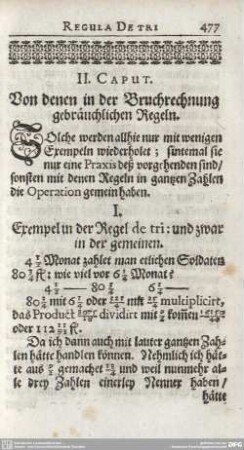 REGULA DE TRI 477
II. CAPUT.
Von denen in der Bruchrechnung
gebräuchlichen Regeln.
SOlche werden allhie nur mit wenigen
Exempeln wiederholet; sintemal sie
nur eine Praxis deß vorgehenden sind/
sonsten mit denen Regeln in gantzen Zahlen
die Operation gemein haben.
I.
Exempel in der Regel de tri: und zwar
in der gemeinen.
Monat zahlet man etlichen Soldaten
wie viel vor 6¼ Monat?
mit 6¼ oder mit multiplicirt,
das Product dividirt mit kom̃en
oder 112
Da ich dann auch mit lauter gantzen Zah-
len hätte handlen können. Nehmlich ich hät-
te aus gemachet und weil nunmehr al-
le drey Zahlen einerley Nenner haben/
hätte